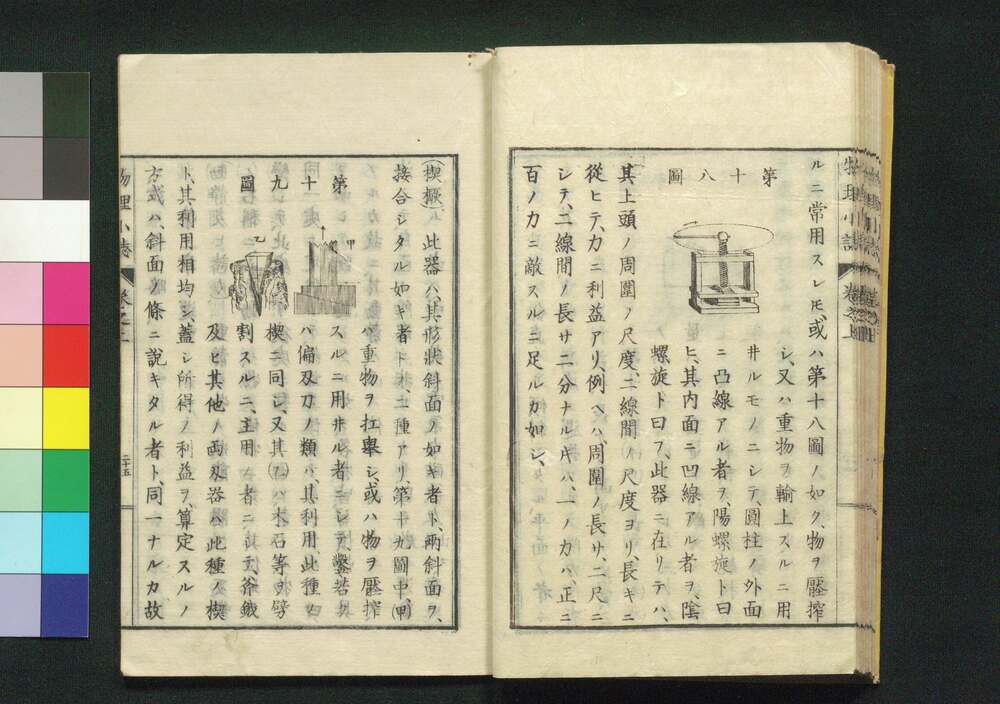 物理小誌 卷之上
ルニ常用スレ𪜈、或ハ第十八圖ノ如ク、物ヲ壓搾
シ、又ハ重物ヲ輸上スルニ用
井ルモノニシテ、圓柱ノ外面
ニ凸線アル者ヲ、陽螺旋ト曰
ヒ、其内面ニ凹線アル者ヲ、陰
螺旋ト曰フ、此器ニ在リテハ、
第十八圖
其上頭ノ周圍ノ尺度、二線間ノ尺度ヨリ、長キニ
從ヒテ、力ニ利益アリ、例ヘハ、周圍ノ長サ、二尺ニ
シテ、二線間ノ長サ二分ナル𪜈、一ノ力ハ、正ニ
百ノ力ニ敵スルニ足ルカ如シ、
(楔橛) 此器ハ、其形狀斜面ノ如キ者ト、兩斜面ヲ、
接合シタル如キ者ト、二種アリ、第十九圖中、(甲)
ハ重物ヲ扛擧シ、或ハ物ヲ壓搾
スルニ用井ル者ニシテ、鑿若クハ
偏刄刀ノ類ハ、其利用此種ノ
楔ニ同シ、又其(乙)ハ木石等ヲ劈
割スルニ、主用ノ者ニシテ、斧鉞
及ヒ其他ノ両刄器ハ此種ノ楔
第十九圖
甲
乙
ト、其利用相均シ、蓋シ所得ノ利益ヲ、算定スルノ
方式ハ、斜面ノ條ニ說キタル者ト、同一ナルカ故
物理小誌
二十五